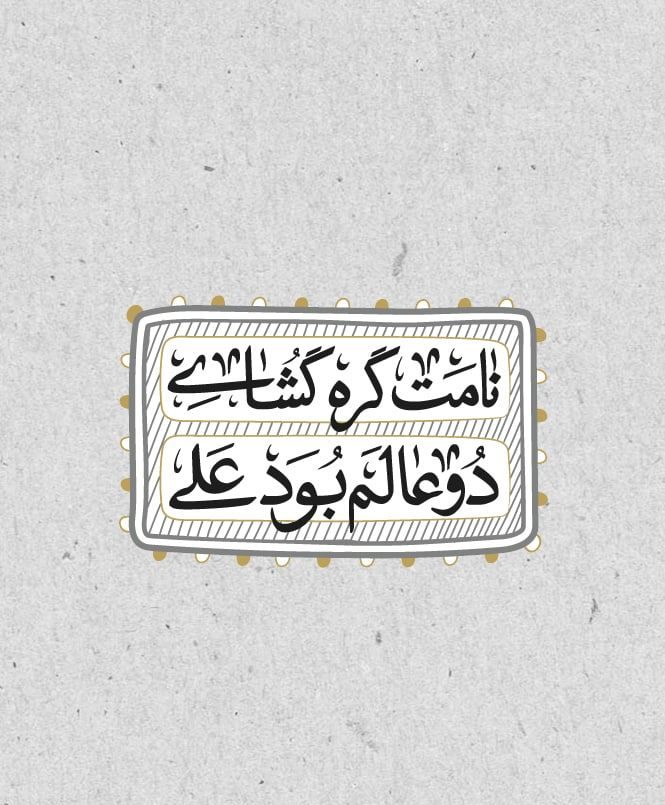 نامَت گره گُشاے
دُو عالَم بُوَد عَلے